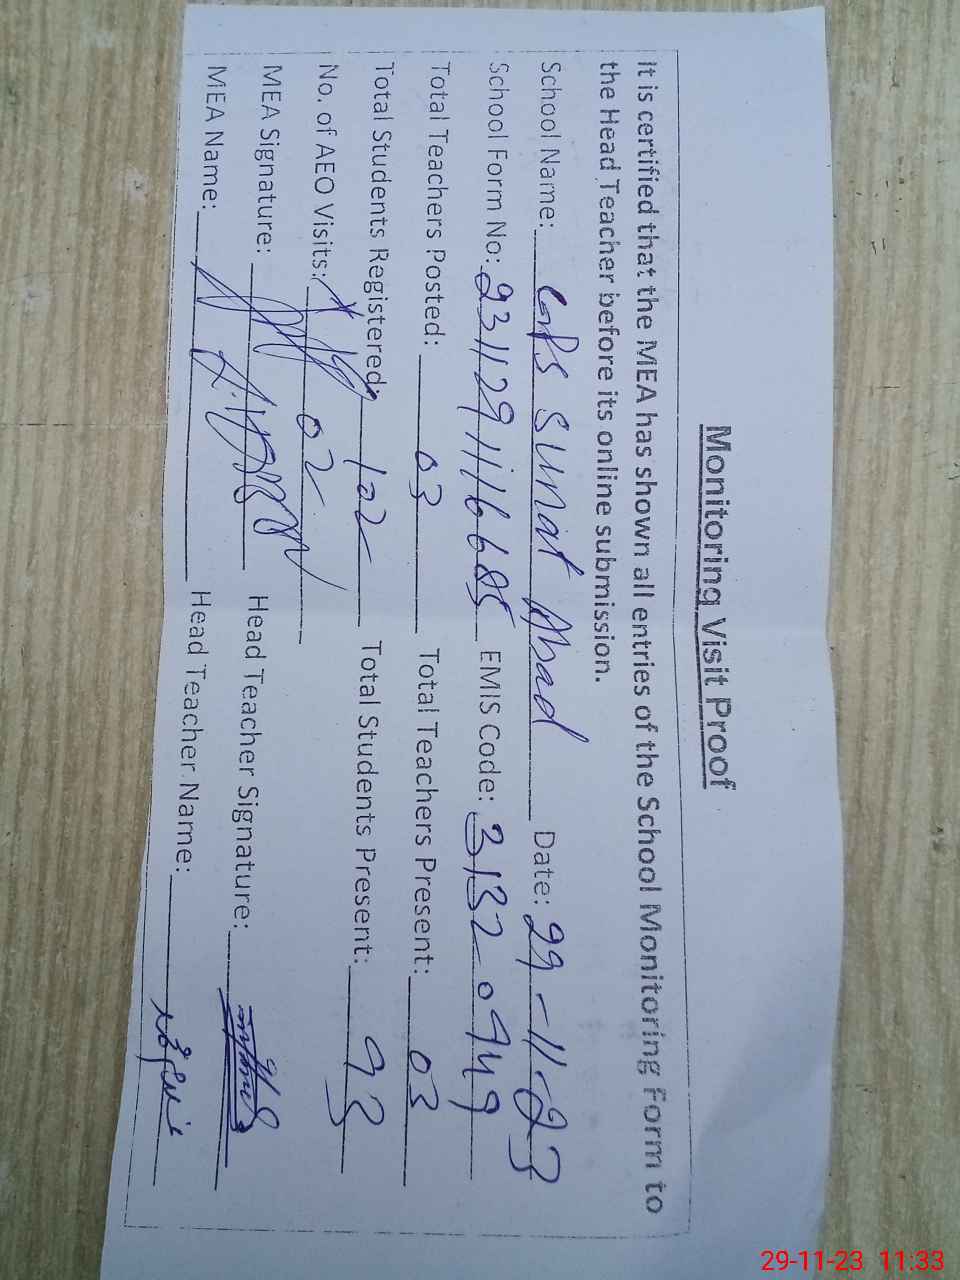 Monitoring Visit Proof
It is certified that the MEA has shown all entries of the School Monitoring Form to
the Head Teacher before its online submission.
School Name: GPS Sunat Abad Date: 29-11-23
School Form No: 2311291116685 EMIS Code: 31320949
Total Teachers Posted: 03 Total Teachers Present: 03
Total Students Registered: 102 Total Students Present: 93
No. of AEO Visits: 02
MEA Signature: Head Teacher Signature:
MEA Name: Head Teacher Name:
29-11-23 11:33